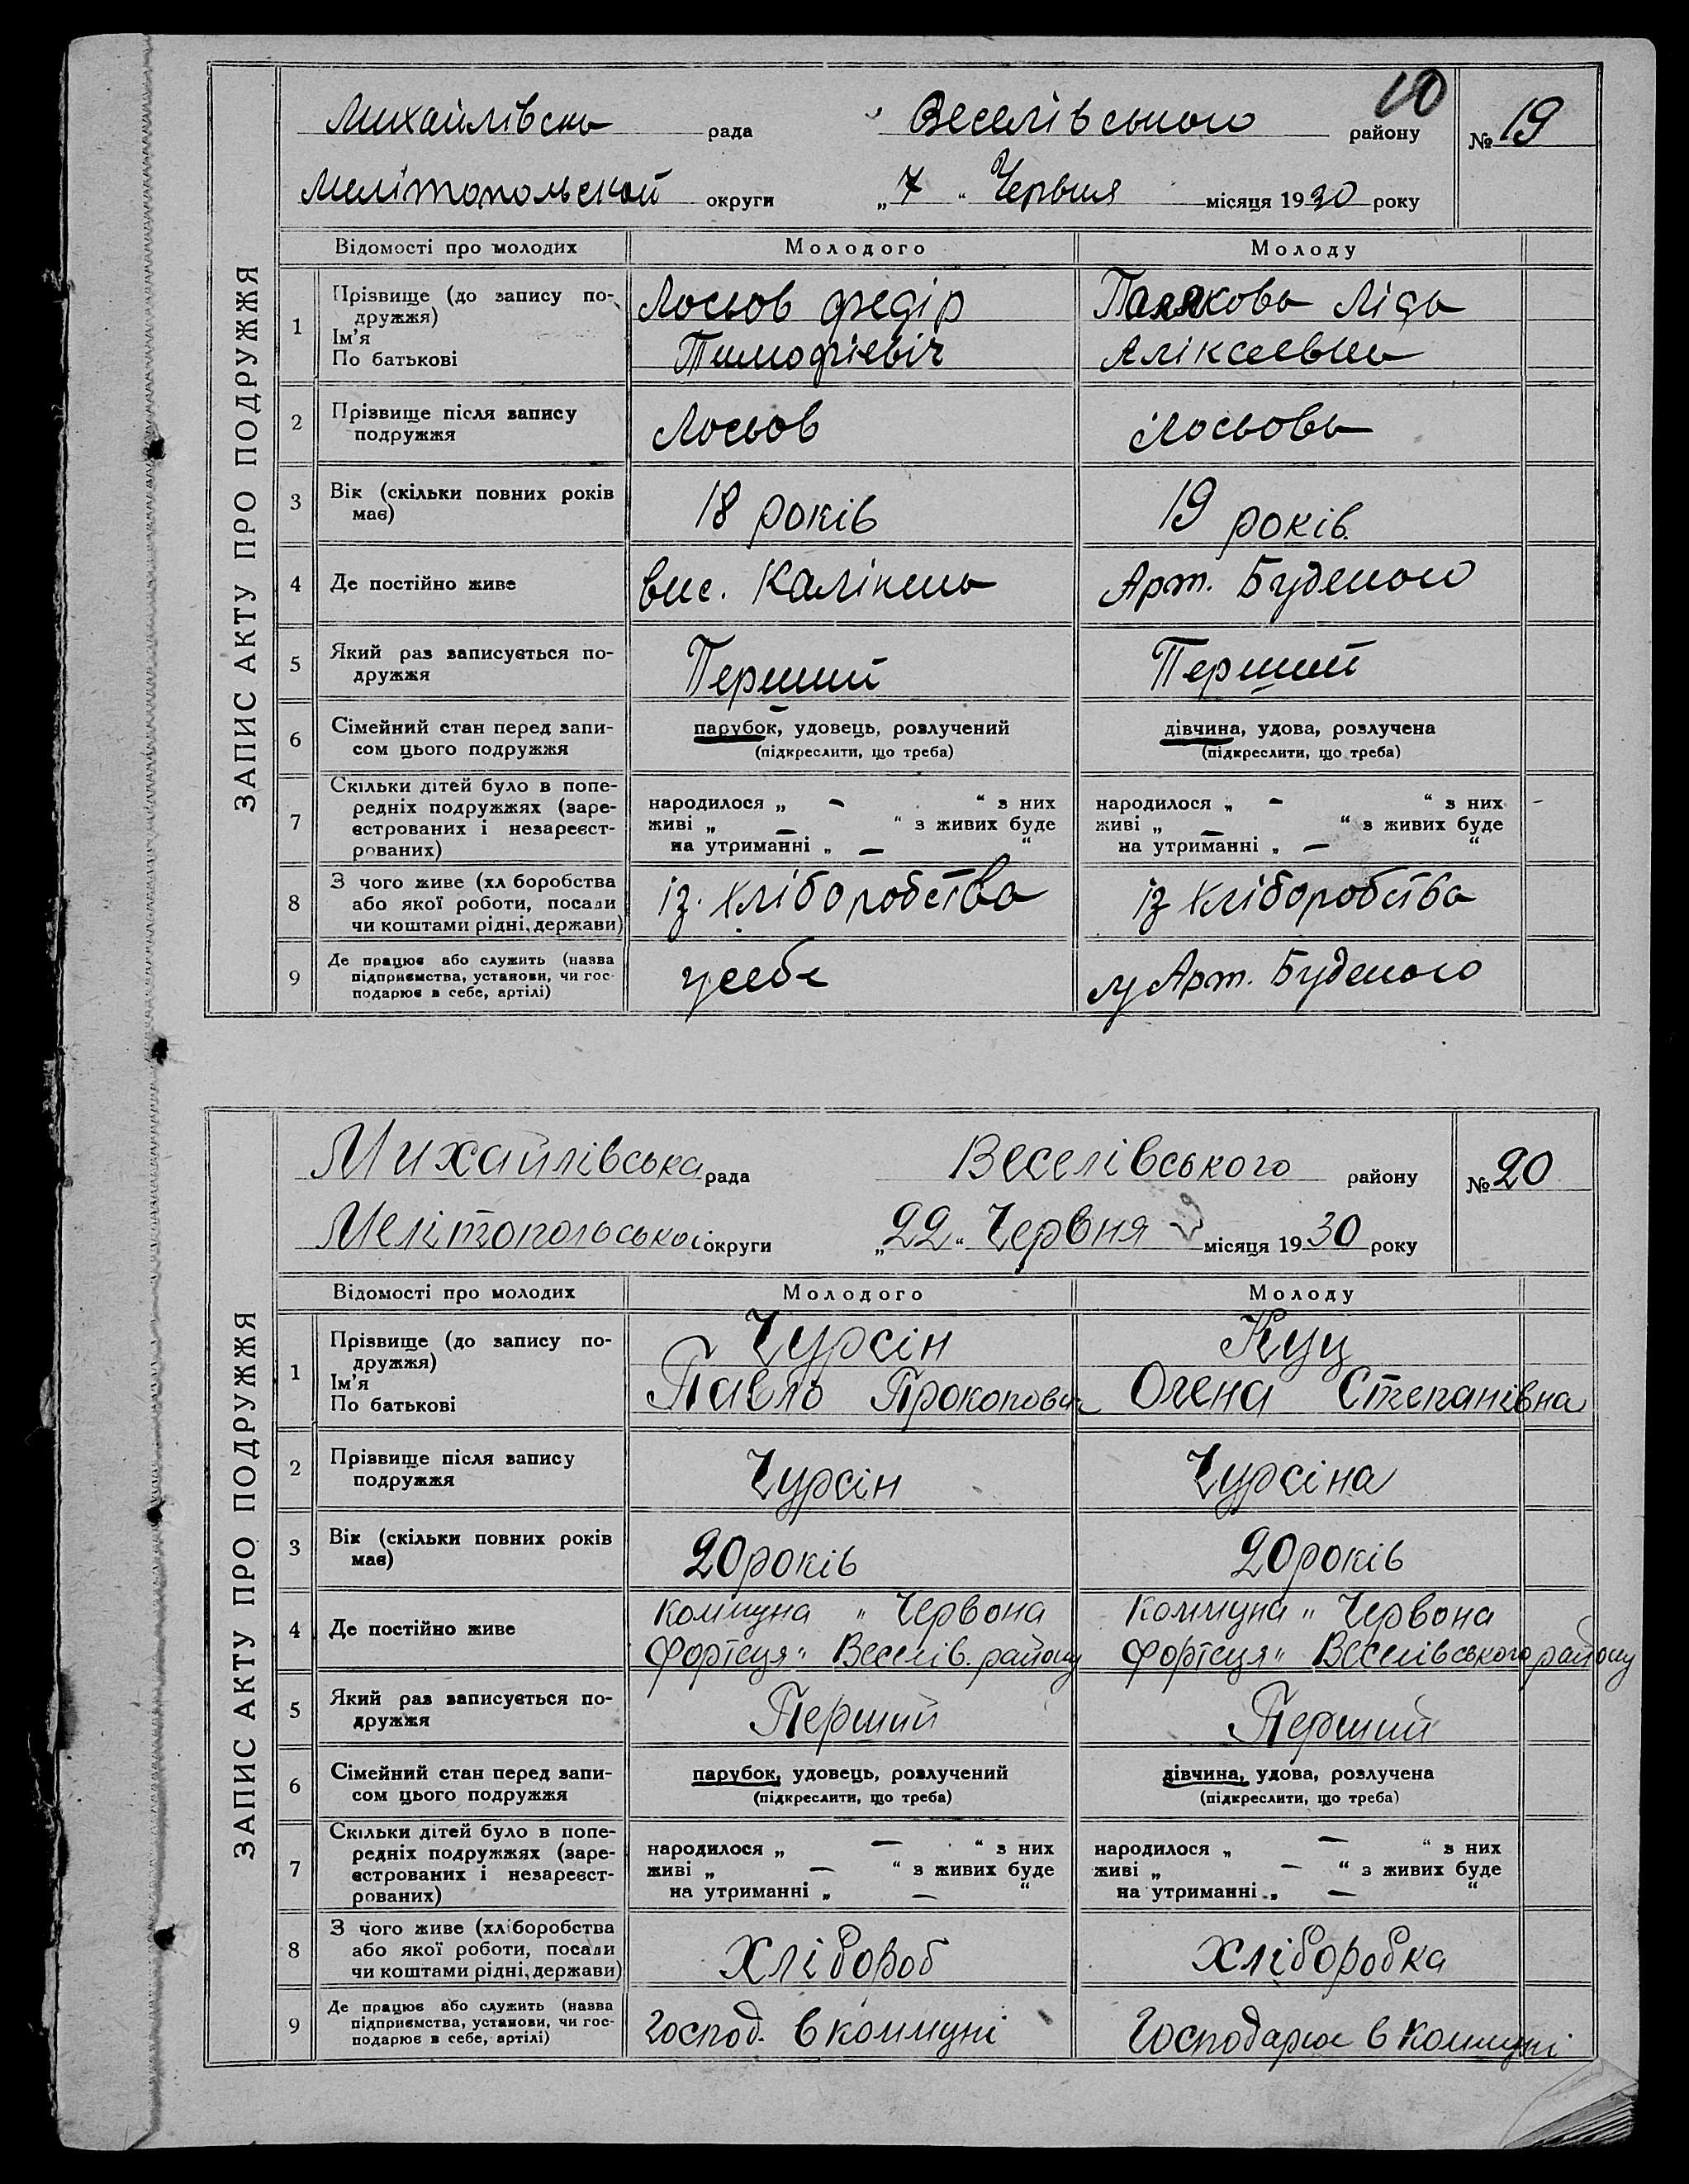 10
Михайлівська рада Веселівського району № 19
Мелітопольской округи „7“ Червня місяця 1930 року
ЗАПИС АКТУ ПРО ПОДРУЖЖЯ
Відомості про молодих Молодого Молоду
1 Прізвище (до запису по-
дружжя)
Ім'я
По батькові
Лосьов Федір
Тимофієвіч
Ліда
Аліксеевна
2 Прізвище після запису
подружжя
Лосьов Лосьова
3 Вік (скільки повних років
має)
18 років 19 років
4 Де постійно живе
вис. Калініна Арт. Буденого
5 Який раз записується по-
дружжя
Перший Перший
6 Сімейний стан перед запи-
сом цього подружжя
парубок, удовець, розлучений дівчина, удова, розлучена
(підкреслити, що треба) (підкреслити, що треба)
7 Скільки дітей було в попе-
редніх подружжях (заре-
єстрованих і незареєст-
рованих)
народилося „ — “ з них народилося „ — “ з них
живі „ — “ з живих буде живі „ — “ з живих буде
на утриманні „ — “ на утриманні „ — “
8 З чого живе (хл боробства
або якої роботи, посади
чи коштами рідні, держави)
із хліборобства із хліборобства
9 Де працює або служить (назва
підприємства, установи, чи гос-
подарює в себе, артілі)
у себе у Арт. Буденого
Михайлівська рада Веселівського району № 20
Мелітопольської округи „22“ Червня місяця 1930 року
ЗАПИС АКТУ ПРО ПОДРУЖЖЯ
Відомості про молодих Молодого Молоду
1 Прізвище (до запису по-
дружжя)
Ім'я
По батькові
Чурсін Куц
Павло Прокопович Олена Степанівна
2 Прізвище після запису
подружжя
Чурсін Чурсіна
3 Вік (скільки повних років
має)
20 років 20 років
4 Де постійно живе
коммуна „Червона коммуна „Червона
Фортеця“ Веселів. району Фортеця“ Веселівського району
5 Який раз записується по-
дружжя
Перший Перший
6 Сімейний стан перед запи-
сом цього подружжя
парубок, удовець, розлучений дівчина, удова, розлучена
(підкреслити, що треба) (підкреслити, що треба)
7 Скільки дітей було в попе-
редніх подружжях (заре-
єстрованих і незареєст-
рованих)
народилося „ — “ з них народилося „ — “ з них
живі „ — “ з живих буде живі „ — “ з живих буде
на утриманні „ — “ на утриманні „ — “
8 З чого живе (хліборобства
або якої роботи, посади
чи коштами рідні, держави)
Хлібороб Хліборобка
9 Де працює або служить (назва
підприємства, установи, чи гос-
подарює в себе, артілі)
Господ. в коммуні Господарює в коммуні